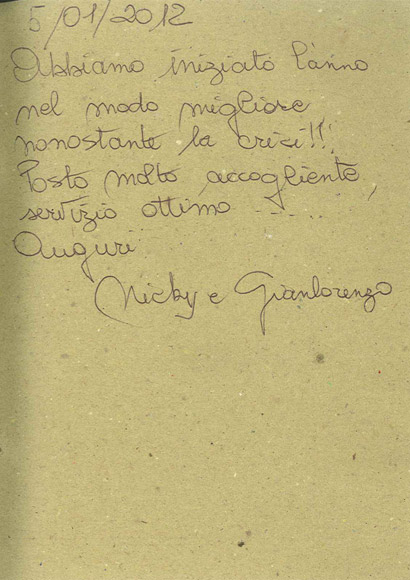 5/01/2012
Abbiamo iniziato l'anno
nel modo migliore
nonostante la crisi!!!
Posto molto accogliente,
servizio ottimo .....
Auguri
Nicky e Gianlorenzo